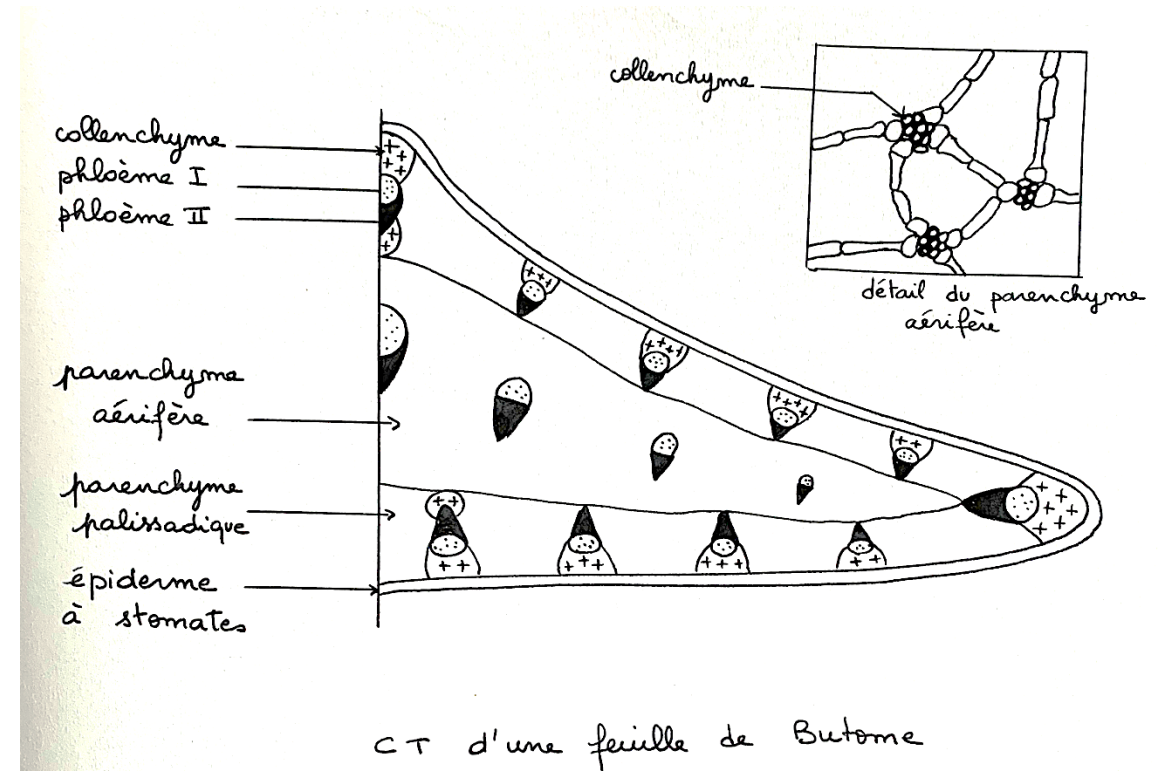 collenchyme
phloème I
phloème II
parenchyme
aérifère
parenchyme
palissadique
épiderme
à stomates
collenchyme
détail du parenchyme
aérifère
CT d'une feuille de Butome